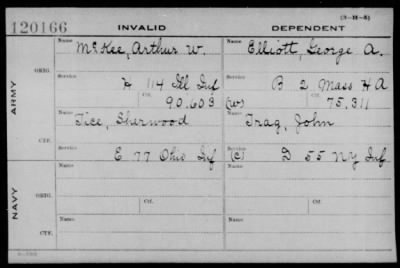 (3-H-5)
120166 INVALID DEPENDENT
ARMY
ORIG.
Name McKee, Arthur W. Name Elliott, George A.
Service H 114 Ill Inf Service B 2 Mass H A
Ctf. 90.603 (W) Ctf. 75,311
CTF.
Name Tice, Sherwood Name Trag, John
Service E 77 Ohio Inf Service (C) D 55 NY Inf.
NAVY
ORIG.
Name Name
Ctf. Ctf.
CTF.
Name Name